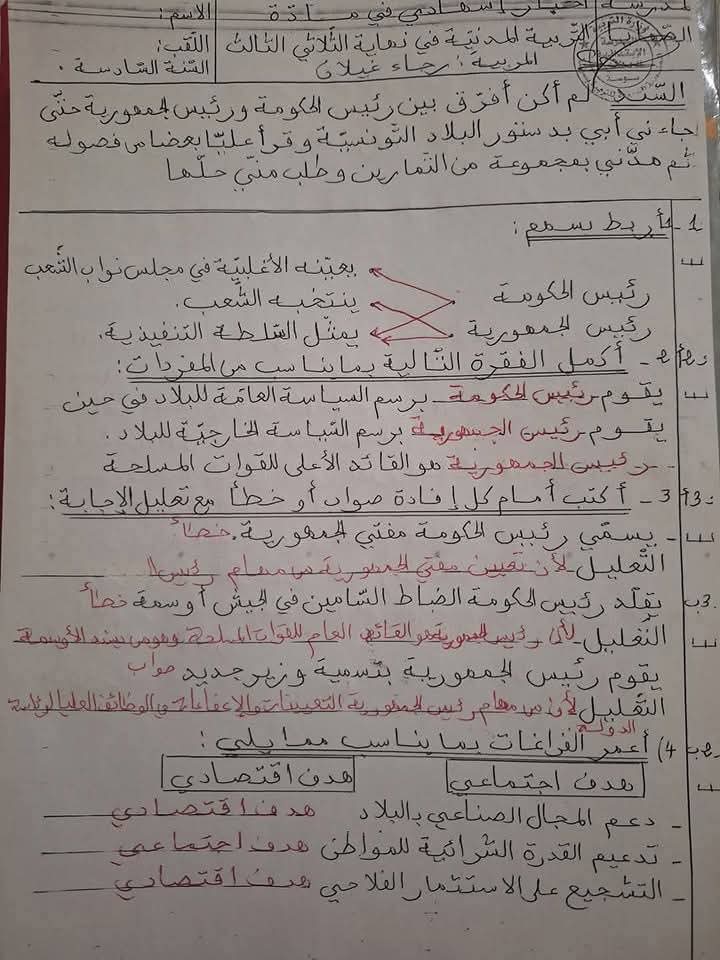 مدرسة اختبار إشهادي في مادة الاسم:
التربية المدنية في نهاية الثلاثي الثالث اللقب:
المربية: رجاء غيلان السنة السادسة.
السند لم أكن أفرّق بين رئيس الحكومة ورئيس الجمهورية حتّى
جاءني أبي بدستور البلاد التّونسيّة وقرأ عليّ بعضا من فصوله
ثم مدّني بمجموعة من التمارين وطلب منّي حلّها
1- أربط بسهم:
يعيّنه الأغلبيّة في مجلس نواب الشّعب
رئيس الحكومة
ينتخبه الشّعب.
رئيس الجمهورية
يمثّل السّلطة التنفيذية.
2- أكمل الفقرة التّالية بما يناسب من المفردات:
يقوم رئيس الحكومة برسم السياسة العامّة للبلاد في حين
يقوم رئيس الجمهورية برسم السّياسة الخارجيّة للبلاد.
- رئيس الجمهورية هو القائد الأعلى للقوات المسلحة
3- أكتب أمام كل إفادة صواب أو خطأ مع تعليل الإجابة:
- يسمّي رئيس الحكومة مفتي الجمهورية. خطأ
التّعليل لأن تعيين مفتي الجمهورية من مهام رئيس
يقلّد رئيس الحكومة الضباط السّامين في الجيش أوسمة خطأ
التّعليل لأن رئيس الجمهورية هو القائد العام للقوات المسلحة وهو من يسند الأوسمة
يقوم رئيس الجمهورية بتسمية وزير جديد صواب
التّعليل لأن من مهام رئيس الجمهورية التعيينات والإعفاءات في الوظائف العليا لرئاسة
الدولة
4) أعمر الفراغات بما يناسب مما يلي:
هدف اجتماعي هدف اقتصادي
- دعم المجال الصناعي بالبلاد هدف اقتصادي
- تدعيم القدرة الشرائية للمواطن هدف اجتماعي
- التشجيع على الاستثمار الفلاحي هدف اقتصادي